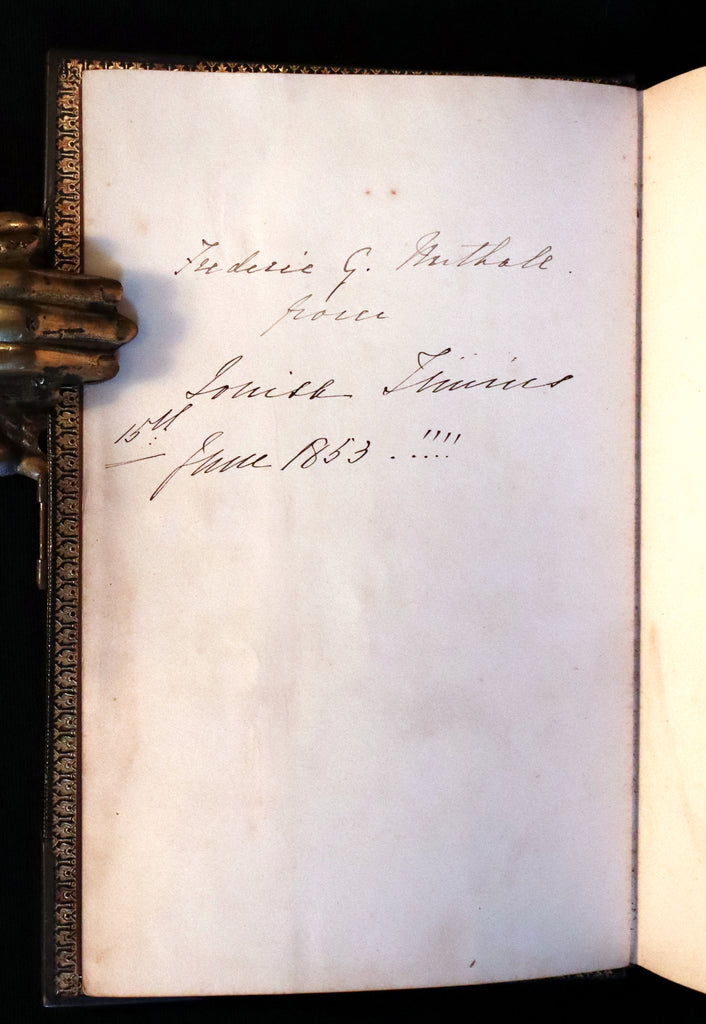 Frederic G. Nuthall.
from
Louisa Timins
15th
June 1853 . !!!!